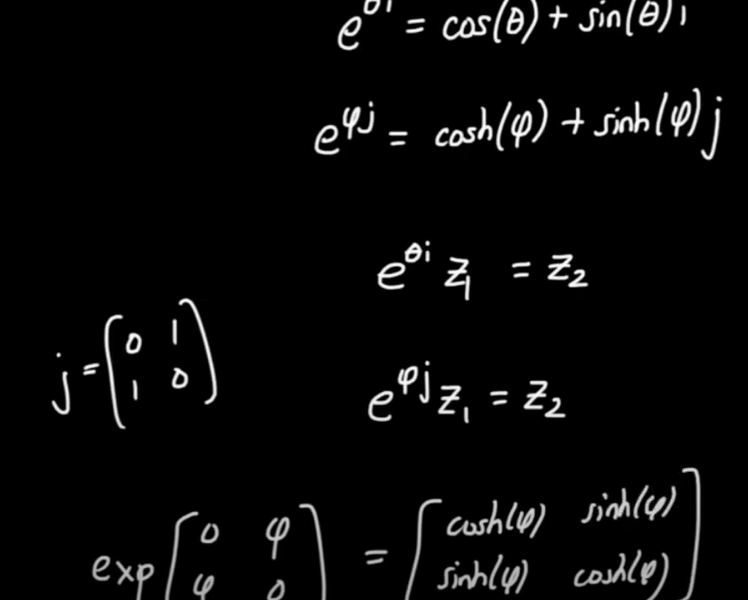 e^{θi} = cos(θ) + sin(θ) i
e^{φj} = cosh(φ) + sinh(φ) j
e^{θi} z₁ = z₂
j = (0 1
1 0)
e^{φj} z₁ = z₂
exp [0 φ
φ 0] = [cosh(φ) sinh(φ)
sinh(φ) cosh(φ)]